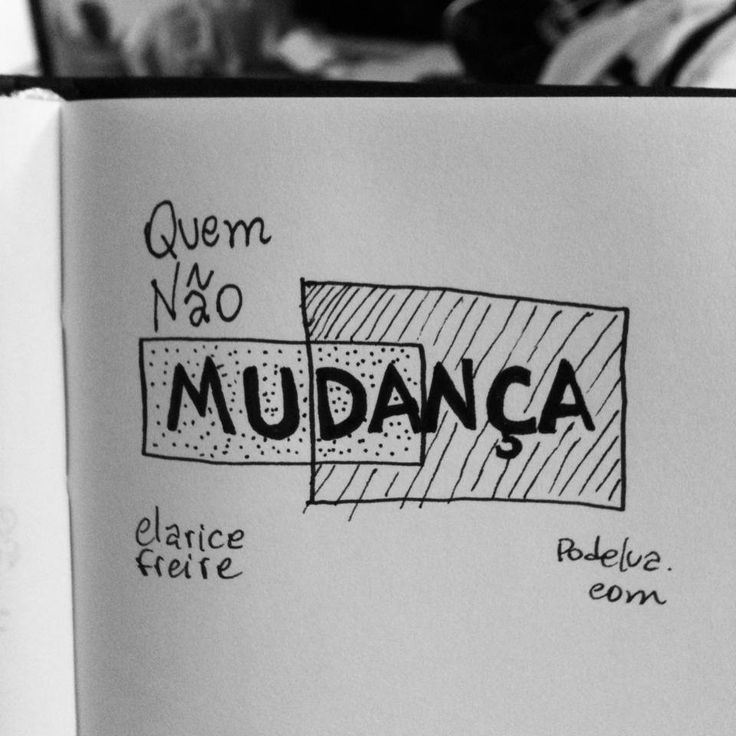 Quem
Não
MUDANÇA
clarice
freire
Podelua.
com